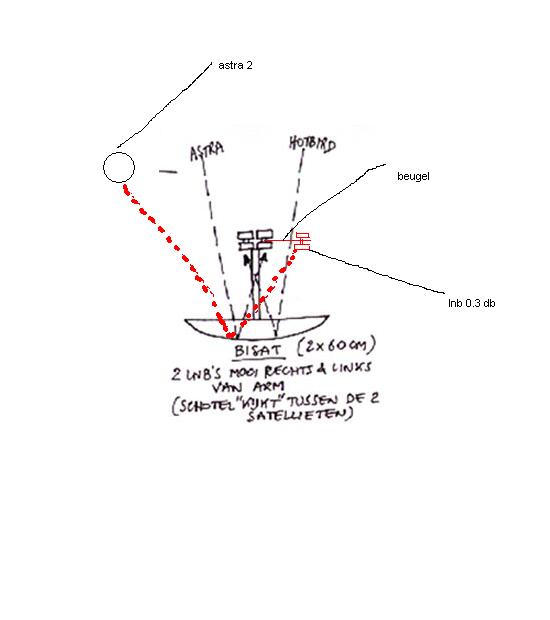 astra 2
ASTRA
HOTBIRD
beugel
lnb 0.3 db
BISAT (2x60CM)
2 LNB'S MOOI RECHTS & LINKS
VAN ARM
(SCHOTEL "KIJKT" TUSSEN DE 2
SATELLIETEN)